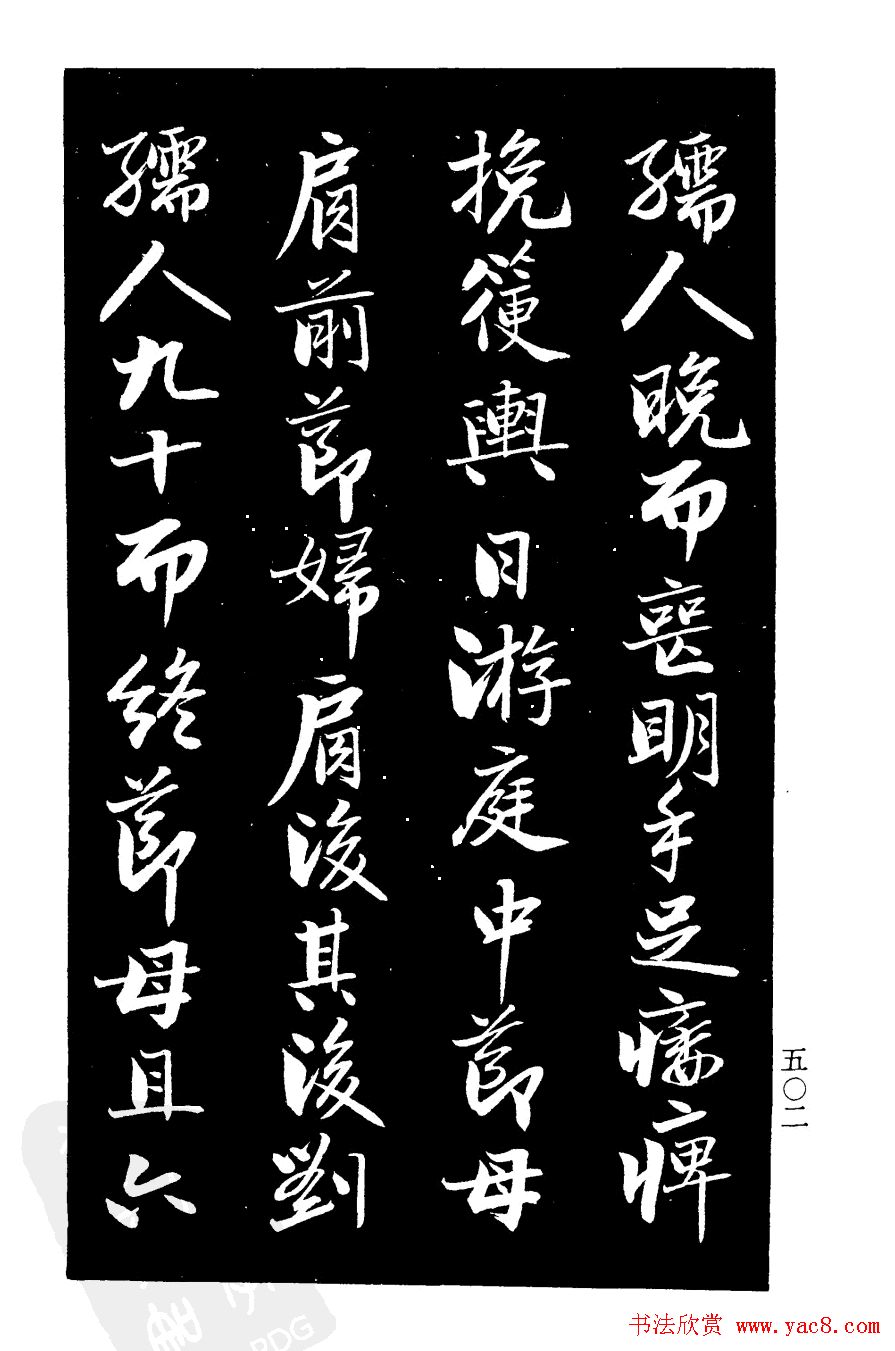 孺人晚而喪明手足痿痺
挽箯輿日游庭中節母
肩前節婦肩後其後劉
孺人九十而終節母且六
五〇二
书法欣赏 www.yac8.com